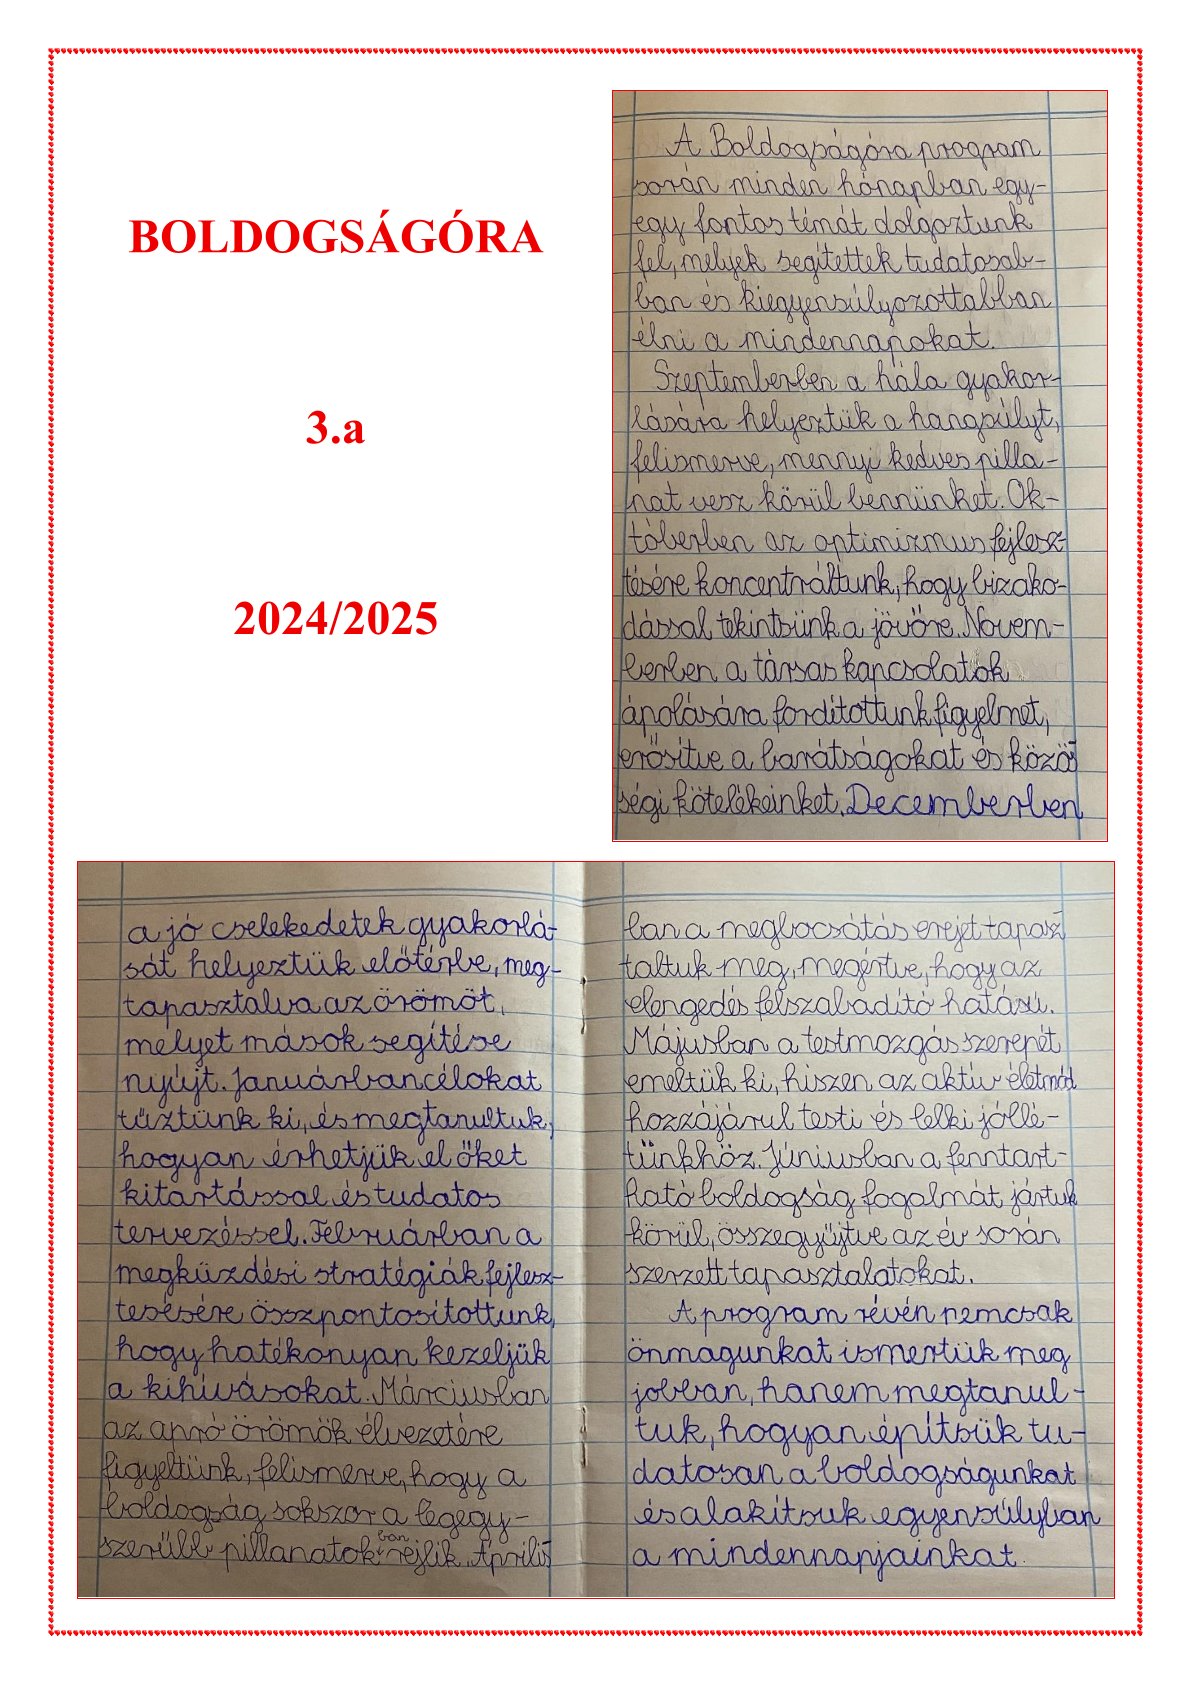 BOLDOGSÁGÓRA
3.a
2024/2025
A Boldogságóra program
során minden hónapban egy-
egy fontos témát dolgoztunk
fel, melyek segítettek tudatosab-
ban és kiegyensúlyozottabban
élni a mindennapokat.
Szeptemberben a hála gyakor-
lására helyeztük a hangsúlyt,
felismerve, mennyi kedves pilla-
nat vesz körül bennünket. Ok-
tóberben az optimizmus fejlesz-
tésére koncentráltunk, hogy bizako-
dással tekintsünk a jövőre. Novem-
berben a társas kapcsolatok
ápolására fordítottunk figyelmet,
erősítve a barátságokat és közös-
ségi kötelékeinket. Decemberben
a jó cselekedetek gyakorlá-
sát helyeztük előtérbe, meg-
tapasztalva az örömöt,
melyet mások segítése
nyújt. Januárban célokat
tűztünk ki, és megtanultuk,
hogyan érhetjük el őket
kitartással és tudatos
tervezéssel. Februárban a
megküzdési stratégiák fejlesz-
tesésére összpontosítottunk,
hogy hatékonyan kezeljük
a kihívásokat. Márciusban
az apró örömök élvezetére
figyeltünk, felismerve, hogy a
boldogság sokszor a legegy-
szerűbb pillanatokban rejlik. Április-
ban a megbocsátás erejét tapasz-
taltuk meg, megértve, hogy az
elengedés felszabadító hatású.
Májusban a testmozgás szerepét
emeltük ki, hiszen az aktív életmód
hozzájárul testi és lelki jóllé-
tünkhöz. Júniusban a fenntart-
ható boldogság fogalmát jártuk
körül, összegyűjtve az év során
szerzett tapasztalatokat.
A program révén nemcsak
önmagunkat ismertük meg
jobban, hanem megtanul-
tuk, hogyan építsük tu-
datosan a boldogságunkat
és alakítsuk egyensúlyban
a mindennapjainkat.